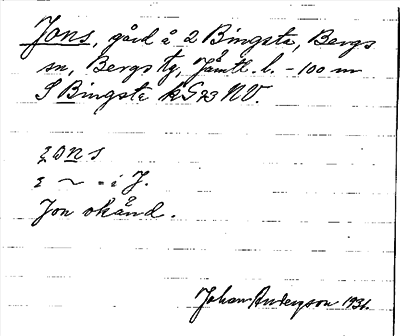 Jons, gård å 2 Bingsta, Bergs
sn, Bergs tg, Jämtl. l. – 100 m
S Bingsta kG73 NV.
i J.
Jon okänd.
Johan Anderzson 1931.